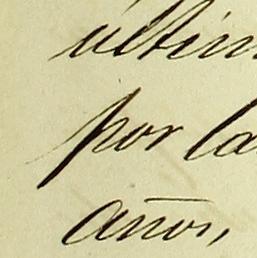 últim
por la
años,